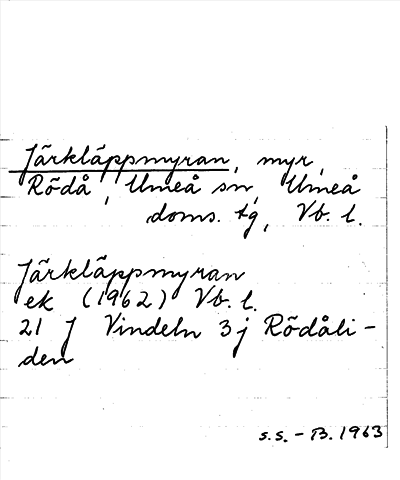 Järkläppmyran, myr,
Rödå, Umeå sn, Umeå
doms. tg, Vb. l.
Järkläppmyran
ek (1962) Vb. l.
21 J Vindeln 3j Rödåli-
den
s.s. - B. 1963